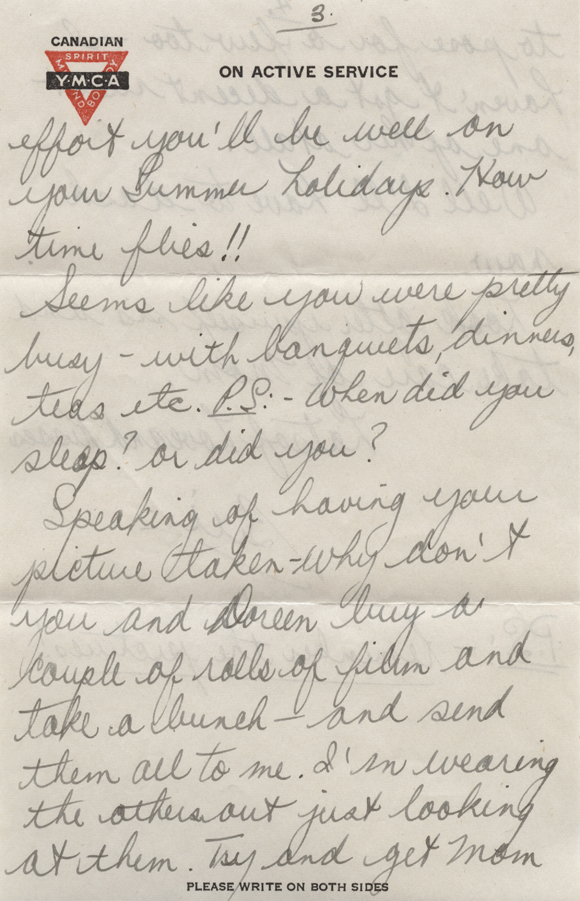 3.
CANADIAN
SPIRIT
Y·M·C·A
MIND BODY
ON ACTIVE SERVICE
effort you'll be well on
your Summer holidays. How
time flies!!
Seems like you were pretty
busy - with banquets, dinners,
teas etc. P.S:- When did you
sleep? or did you?
Speaking of having your
picture taken - why don't
you and Doreen buy a
couple of rolls of film and
take a bunch - and send
them all to me. I'm wearing
the others out just looking
at them. Try and get Mom
PLEASE WRITE ON BOTH SIDES